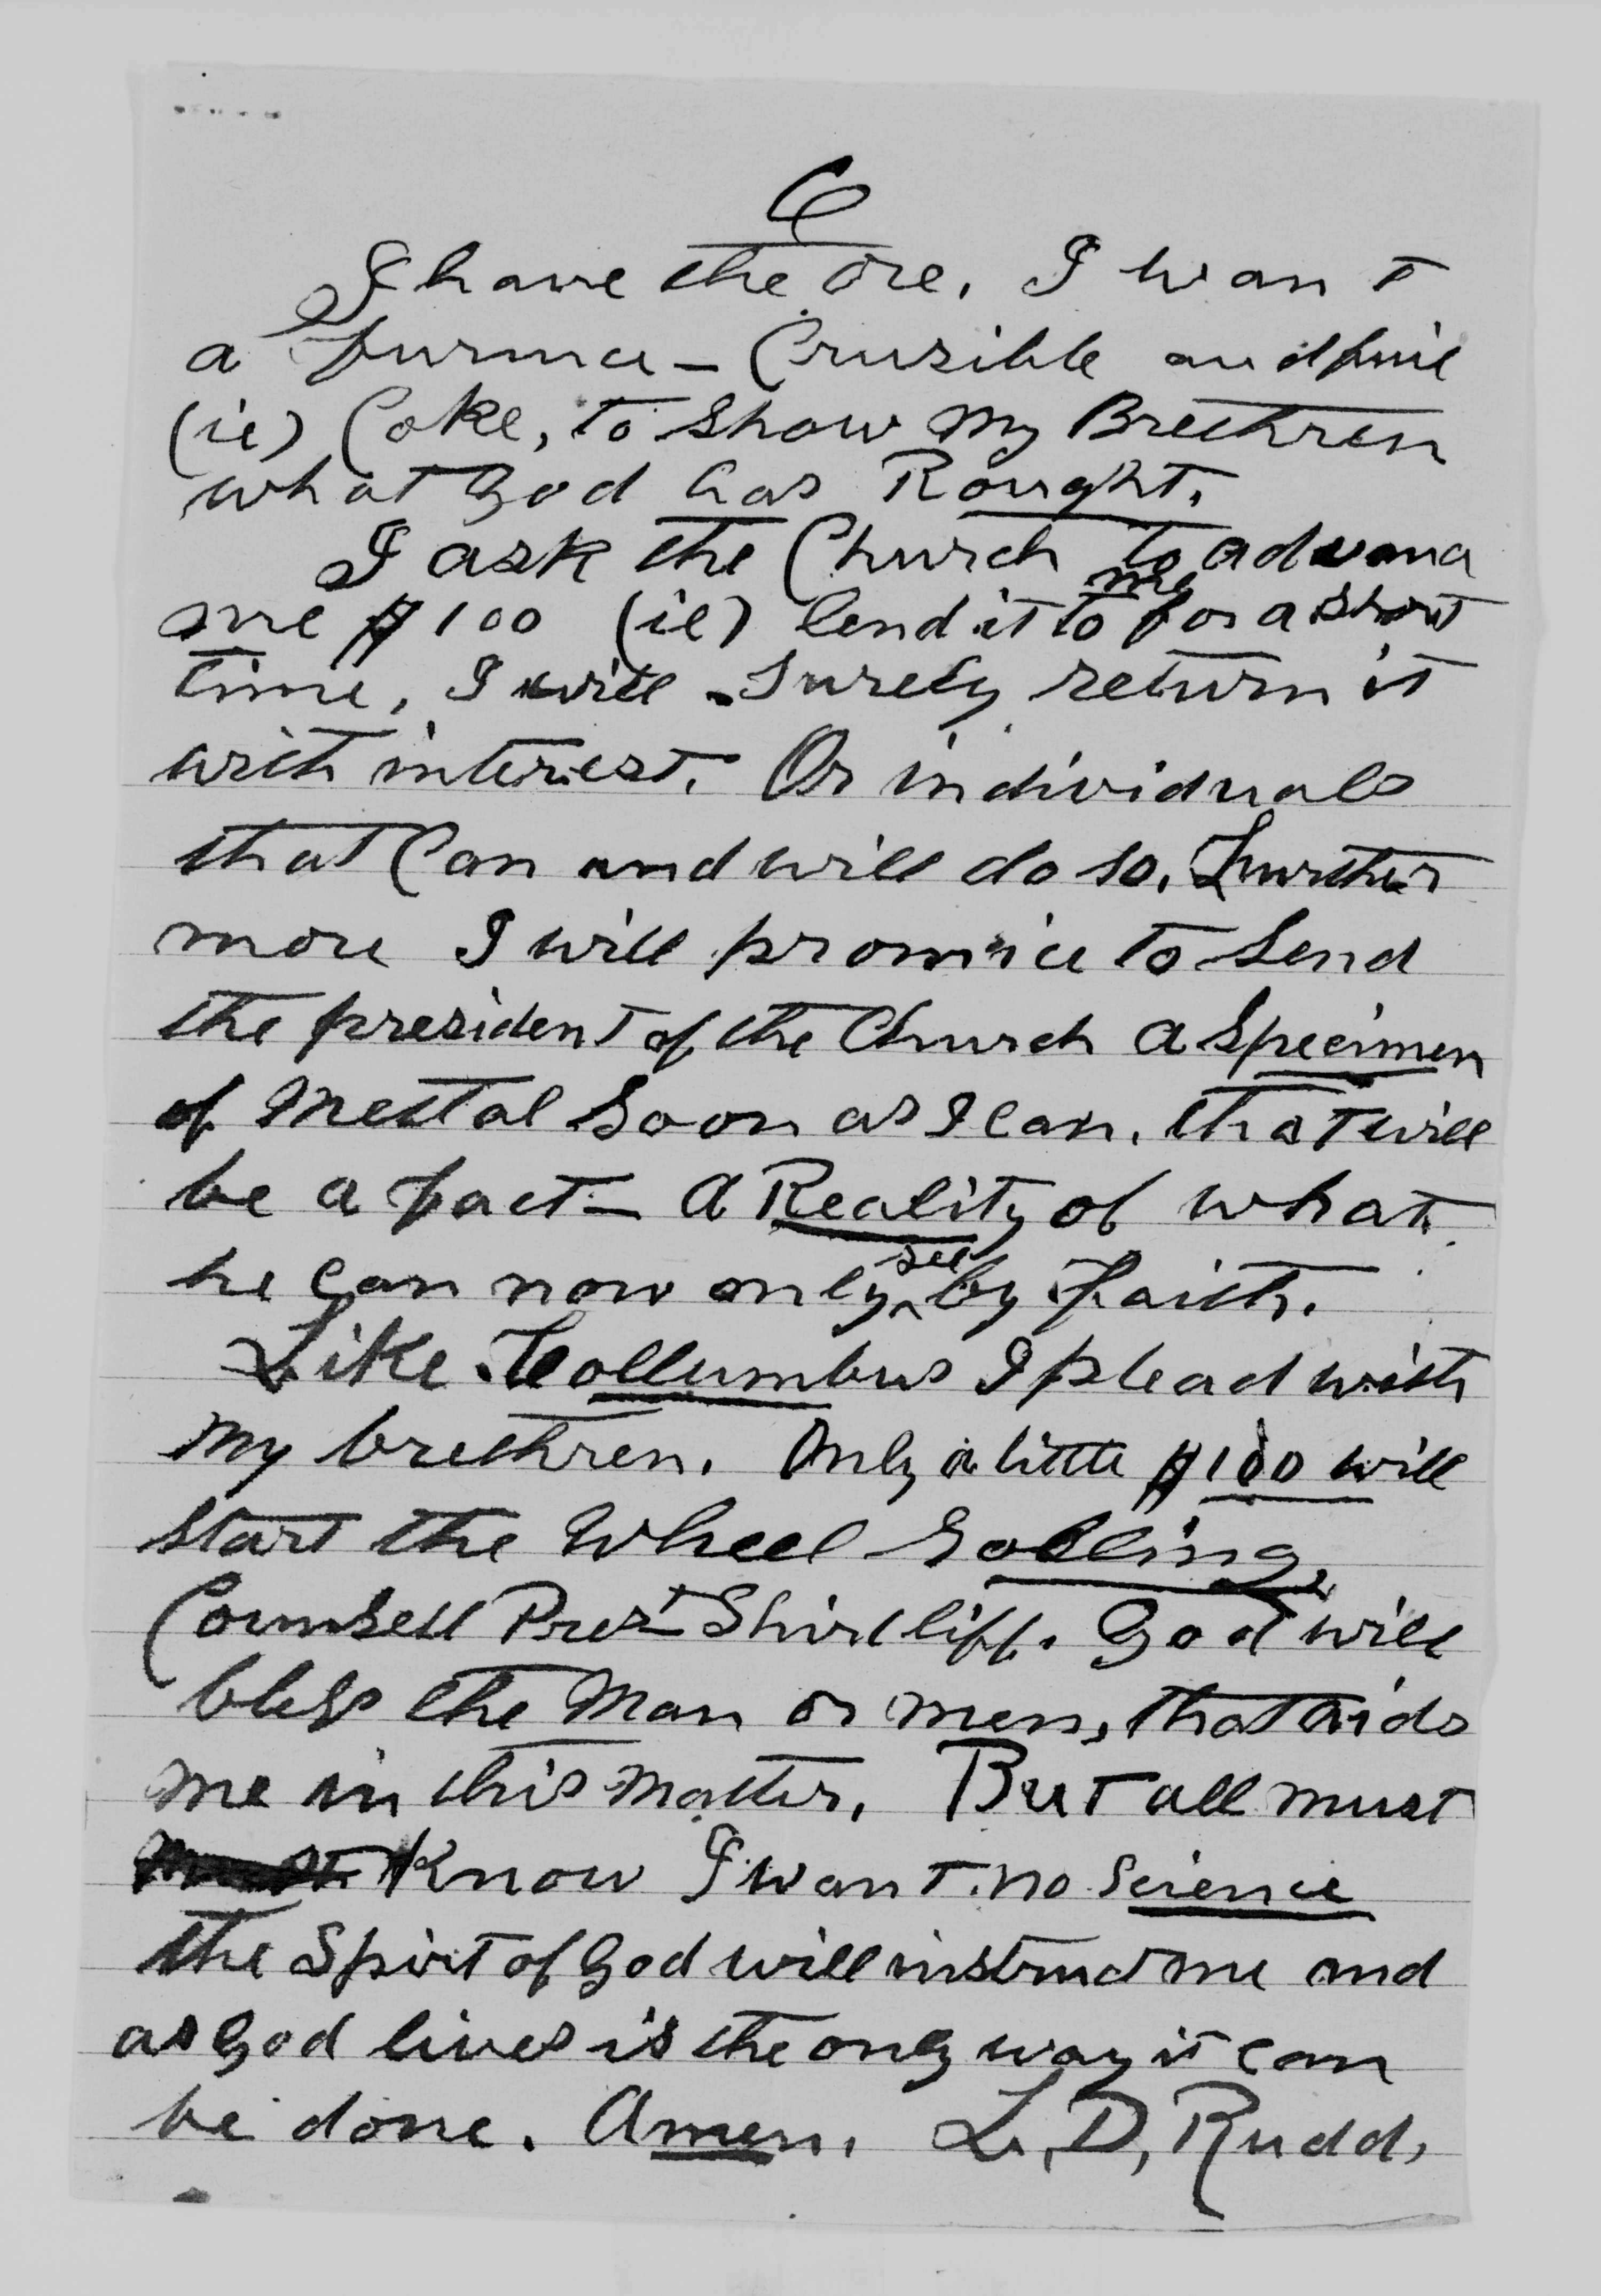 6
I have the ore. I want
a furnace — Cruzible and fuil
(ie) Coke, to show my Brethren
what God has Rought.
I ask the Church to advance
me $100 (ie) lend it to me for a short
time, I will surely return it
with interest. Or individuals
that Can and will do so. Further
more I will promice to send
the president of the Church a Specimen
of Mettal soon as I can. that will
be a fact — A Reality of what
he can now only see by Faith.
Like Collumbus I plead with
my brethren. Only a little $100 will
start the Wheel Rolling,
Counsell Prest Shirtliff. God will
bless the Man or men, that aids
me in this matter. But all must
Know I want no Science
the Spirit of God will instruct me and
as God lives is the only way it can
be done. Amen. L. D, Rudd,